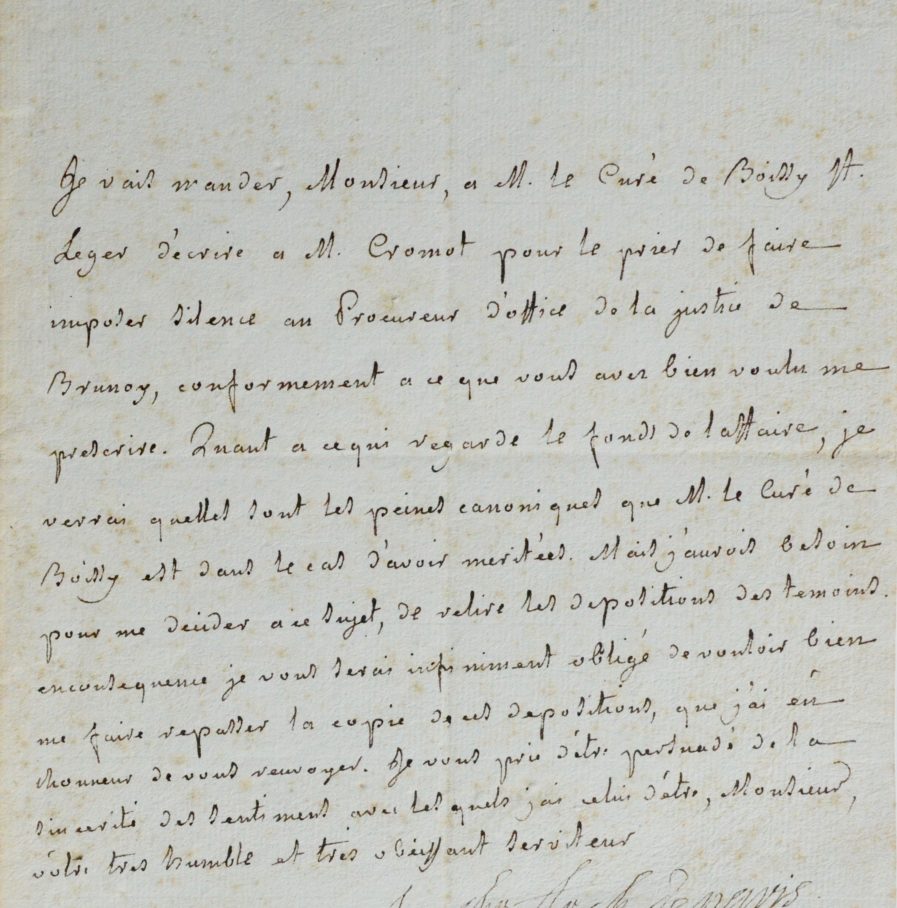 Je vais mander, Monsieur, a M. le Curé de Boissy St.
Leger d'écrire a M. Cromot pour le prier de faire
imposer silence au Procureur d'office de la justice de
Brunoy, conformement a ce que vous avez bien voulu me
prescrire. Quant a ce qui regarde le fonds de l'affaire, je
verrai quelles sont les peines canoniques que M. le Curé de
Boissy est dans le cas d'avoir meritées. Mais j'aurois besoin
pour me decider a ce sujet, de relire les depositions des temoins.
en consequence je vous serai infiniment obligé de vouloir bien
me faire repasser la copie de ces depositions, que j'ai éû
l'honneur de vous renvoyer. Je vous prie d'être persuadé de la
sincerité des sentiments avec lesquels j'ai celui d'être, Monsieur,
vôtre tres humble et très obeissant serviteur
de paris